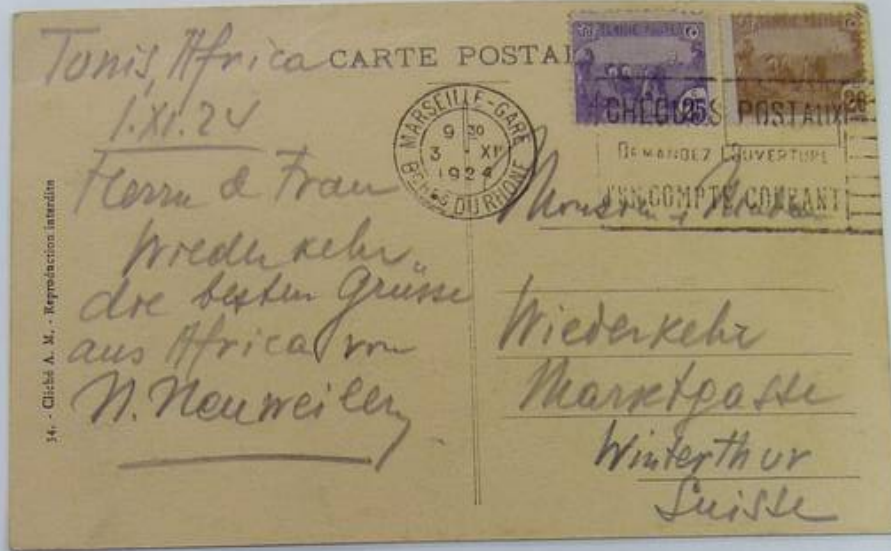 Tunis, Africa
1.XI.24
Herrn & Frau
Wiederkehr,
die besten Grüsse
aus Africa von
N. Neuweiler
CARTE POSTAL
TUNISIE POSTE
25
MARSEILLE-GARE
9 30
3 XI
1924
BCHES DU RHONE
CHÈQUES POSTAUX
DEMANDEZ L'OUVERTURE
D'UN COMPTE COURANT
Wiederkehr
Marktgasse
Winterthur
Suisse
34. - Cliché A. M. - Reproduction interdite